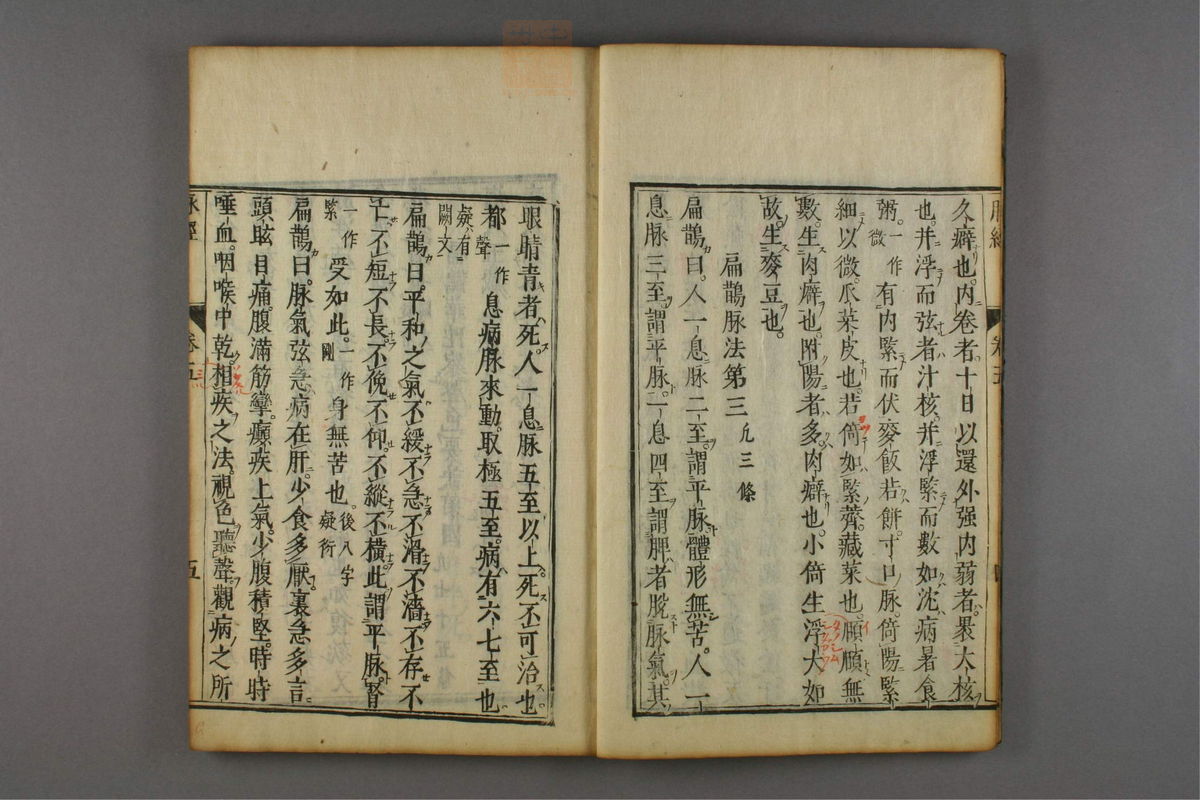 久癖也内卷者十日以還外强内弱者裹大核
也并浮而弦者汁核并浮緊而數如沈病暑食
粥一作微有内緊而伏麥飯若餅寸口脉倚陽緊
細以微瓜菜皮也若倚如緊薺藏菜也頤頤無
數生肉癖也附陽者多肉癖也小倚生浮大如
故生麥豆也
扁鵲脉法第三 凡三條
扁鵲曰人一息脉二至謂平脉體形無苦人一
息脉三至謂平脉一息四至謂脾者脫脉氣其
眼睛青者死人一息脉五至以上死不可治也
都一作聲息病脉來動取極五至病有六七至也
疑有闕文
扁鵲曰平和之氣不緩不急不滑不濇不存不
亡不短不長不俛不仰不縱不横此謂平脉腎
一作緊受如此一作剛身無苦也後八字疑衍
扁鵲曰脉氣弦急病在肝少食多厭裏急多言
頭眩目痛腹滿筋攣癲疾上氣少腹積堅時時
唾血咽喉中乾相疾之法視色聽聲觀病之所
脉經
卷五
五